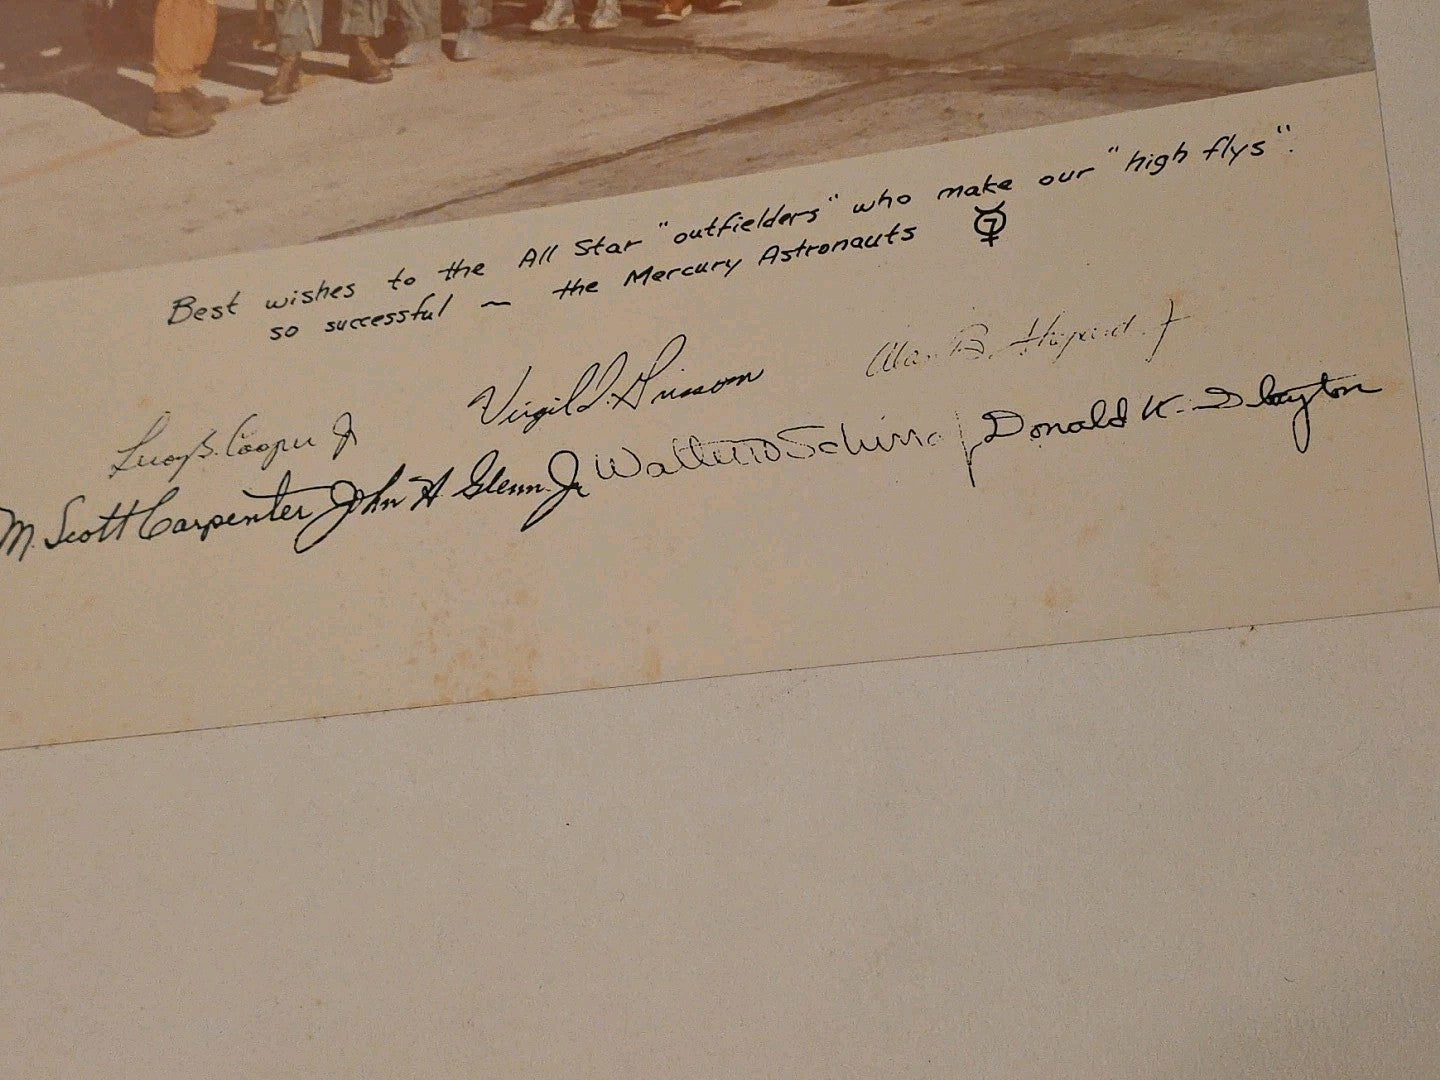 Best wishes to the All Star "outfielders" who make our "high flys".
so successful ~ the Mercury Astronauts 7
Leroy G. Cooper Jr
Virgil I. Grissom
Alan B. Shepard Jr
M. Scott Carpenter
John H Glenn. Jr
Walter M Schirra Jr
Donald K. Slayton